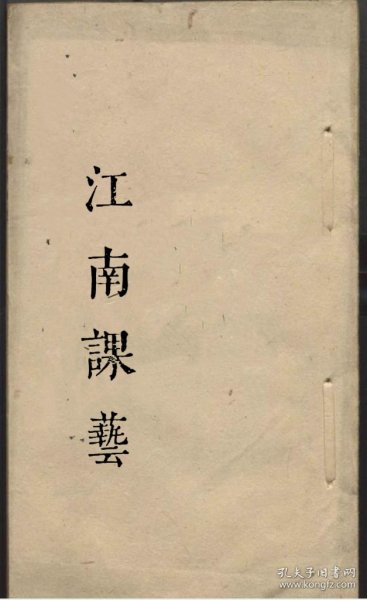 江南課藝
孔夫子旧书网
www.kongfz.com